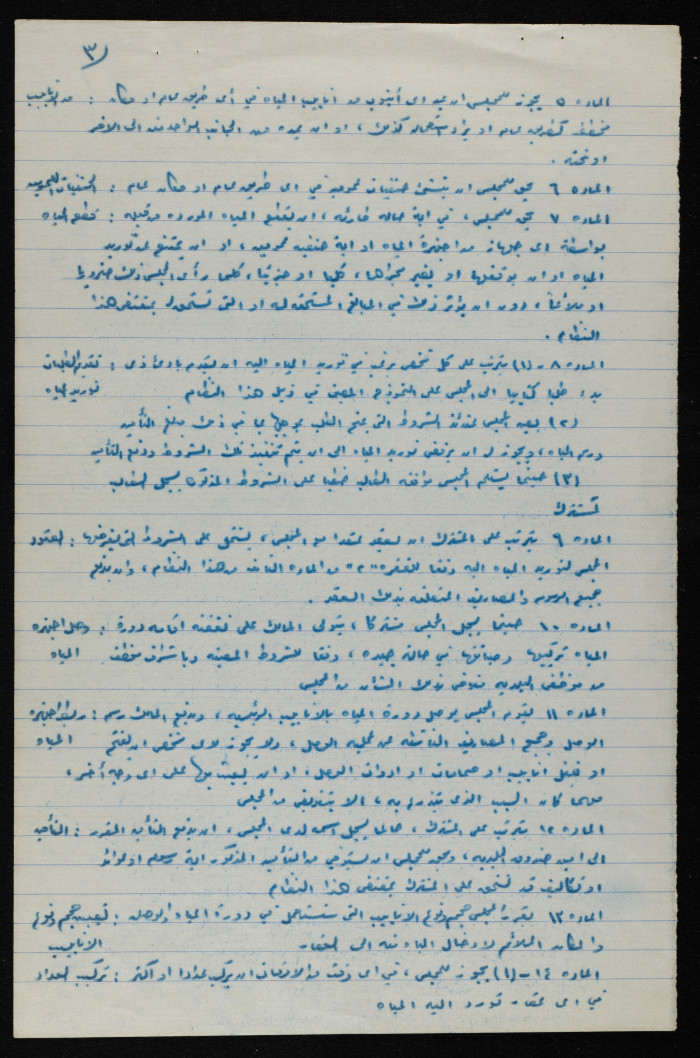 ٣
المادة ٥ يجوز للمجلس ان يمد اي أنبوب من انابيب المياه في أي طريق عام او مكان : مد الانابيب
مخطط كطريق عام او يراد استعماله كذلك ، او ان يمده من الجانب الواحد منه الى الاخر
او تحته .
المادة ٦ يحق للمجلس ان ينشئ حنفيات عمومية في اي طريق عام او مكان عام : الحنفيات العمومية
المادة ٧ يحق للمجلس ، في اية حالة طارئة ، ان يقطع المياه الموردة من قبله : قطع المياه
بواسطة اي جهاز من اجهزة المياه او اية حنفية عمومية ، او ان يمتنع عن توريد
المياه او ان يوقفها او يغير مجراها ، كليا او جزئيا ، كلما رأى المجلس ذلك ضروريا
او ملائما ، دون ان يؤثر ذلك في المبالغ المستحقة له او التي تستحق له بمقتضى هذا
النظام .
المادة ٨ - (١) يترتب على كل شخص يرغب في توريد المياه اليه ان يتقدم بادئ ذي : تقديم الطلبات
بدء طلبا كتابيا الى المجلس على النموذج المبين في ذيل هذا النظام لتوريد المياه
(٢) يعين المجلس عندئذ الشروط التي يمنح الطلب بموجبها بما في ذلك مبلغ التأمين
ورسم المياه ، ويجوز له ان يرفض توريد المياه الى ان يتم تنفيذ تلك الشروط ودفع التأمين
(٣) حينما يستلم المجلس موافقة الطالب خطيا على الشروط المذكورة يسجل الطالب
كمشترك
المادة ٩ يترتب على المشترك ان يعقد عقدا مع المجلس ، يشتمل على الشروط التي يفرضها : العقود
المجلس لتوريد المياه اليه وفقا للفقرة "٢" من المادة الثامنة من هذا النظام ، وان يدفع
جميع الرسوم والمصاريف المتعلقة بذلك العقد .
المادة ١٠ حينما يسجل المجلس مشتركا ، يتولى المالك على نفقته اقامة دورة : وصل اجهزة
المياه تركيبها وصيانتها في حالة جيدة ، وفقا للشروط المعينة وباشراف موظف المياه
من موظفي البلدية مفوض بذلك الشأن من المجلس
المادة ١١ يقوم المجلس بوصل دورة المياه بالانابيب الرئيسية ، ويدفع المالك رسم : ربط اجهزة
الوصل وجميع المصاريف الناشئة عن عملية الوصل ، ولا يجوز لاي شخص ان يفتح المياه
او يقفل انابيب او صمامات او ادوات الوصل ، او ان يعبث بها على اي وجه آخر ،
مهما كان السبب الذي يتذرع به ، الا بتفويض من المجلس
المادة ١٢ يترتب على المشترك ، حالما يسجل اسمه لدى المجلس ، ان يدفع التأمين المقرر : التأمين
الى امين صندوق البلدية ، ويحق للمجلس ان يستوفي من التأمين المذكور اية رسوم او عوائد
او تكاليف قد تستحق على المشترك بمقتضى هذا النظام
المادة ١٣ يقرر المجلس حجم ونوع الانابيب التي ستستعمل في دورة المياه والوصلة : تعيين حجم ونوع
والمكان الملائم لادخال المياه منه الى العقار الانابيب
المادة ١٤ - (١) يجوز للمجلس ، في اي وقت من الاوقات ان يركب عدادا او اكثر : تركيب العداد
في اي عقار تورد اليه المياه